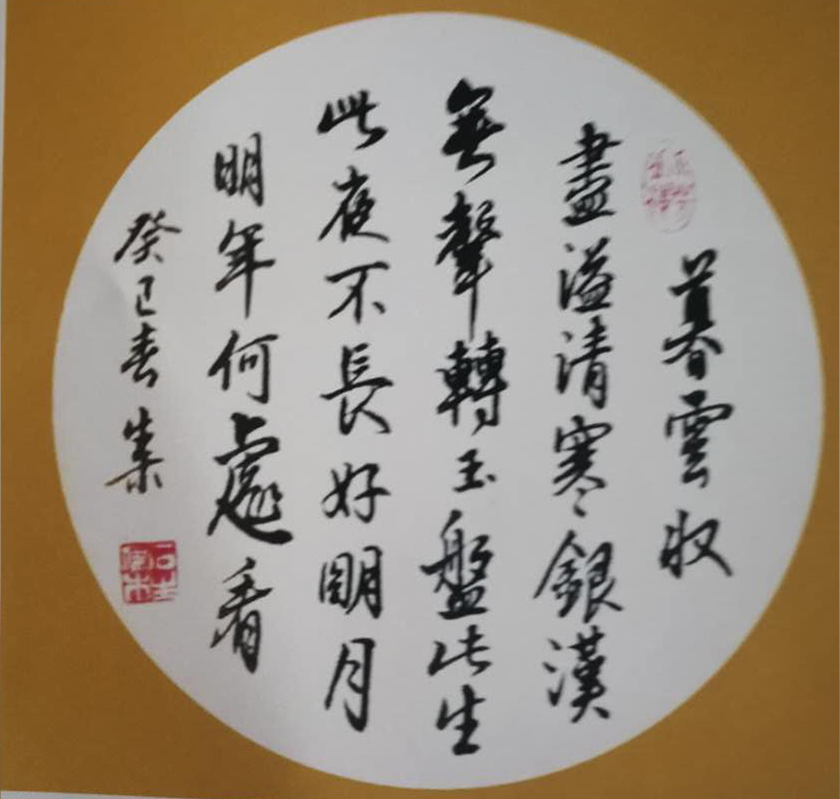 暮雲収
盡溢清寒銀漢
無聲轉玉盤此生
此夜不長好明月
明年何處看
癸巳春